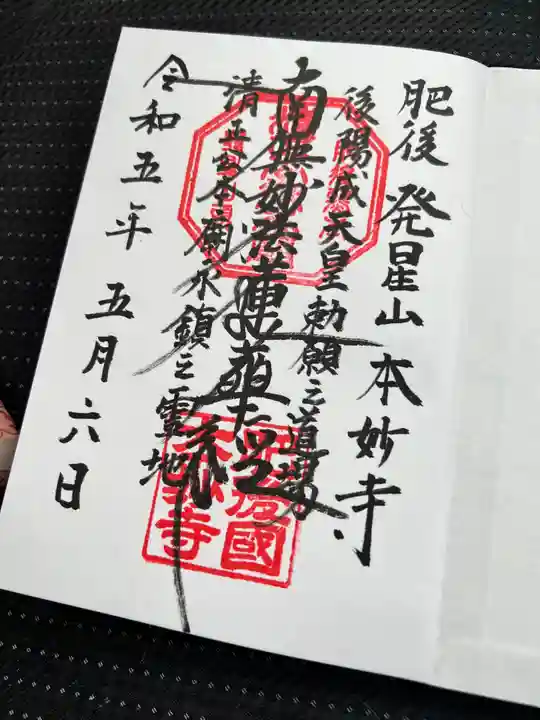 肥後 発星山 本妙寺
後陽成天皇勅願之道場
南無妙法蓮華経
清正公本廟永鎮之霊地
令和五年 五月六日
肥後國
本妙寺